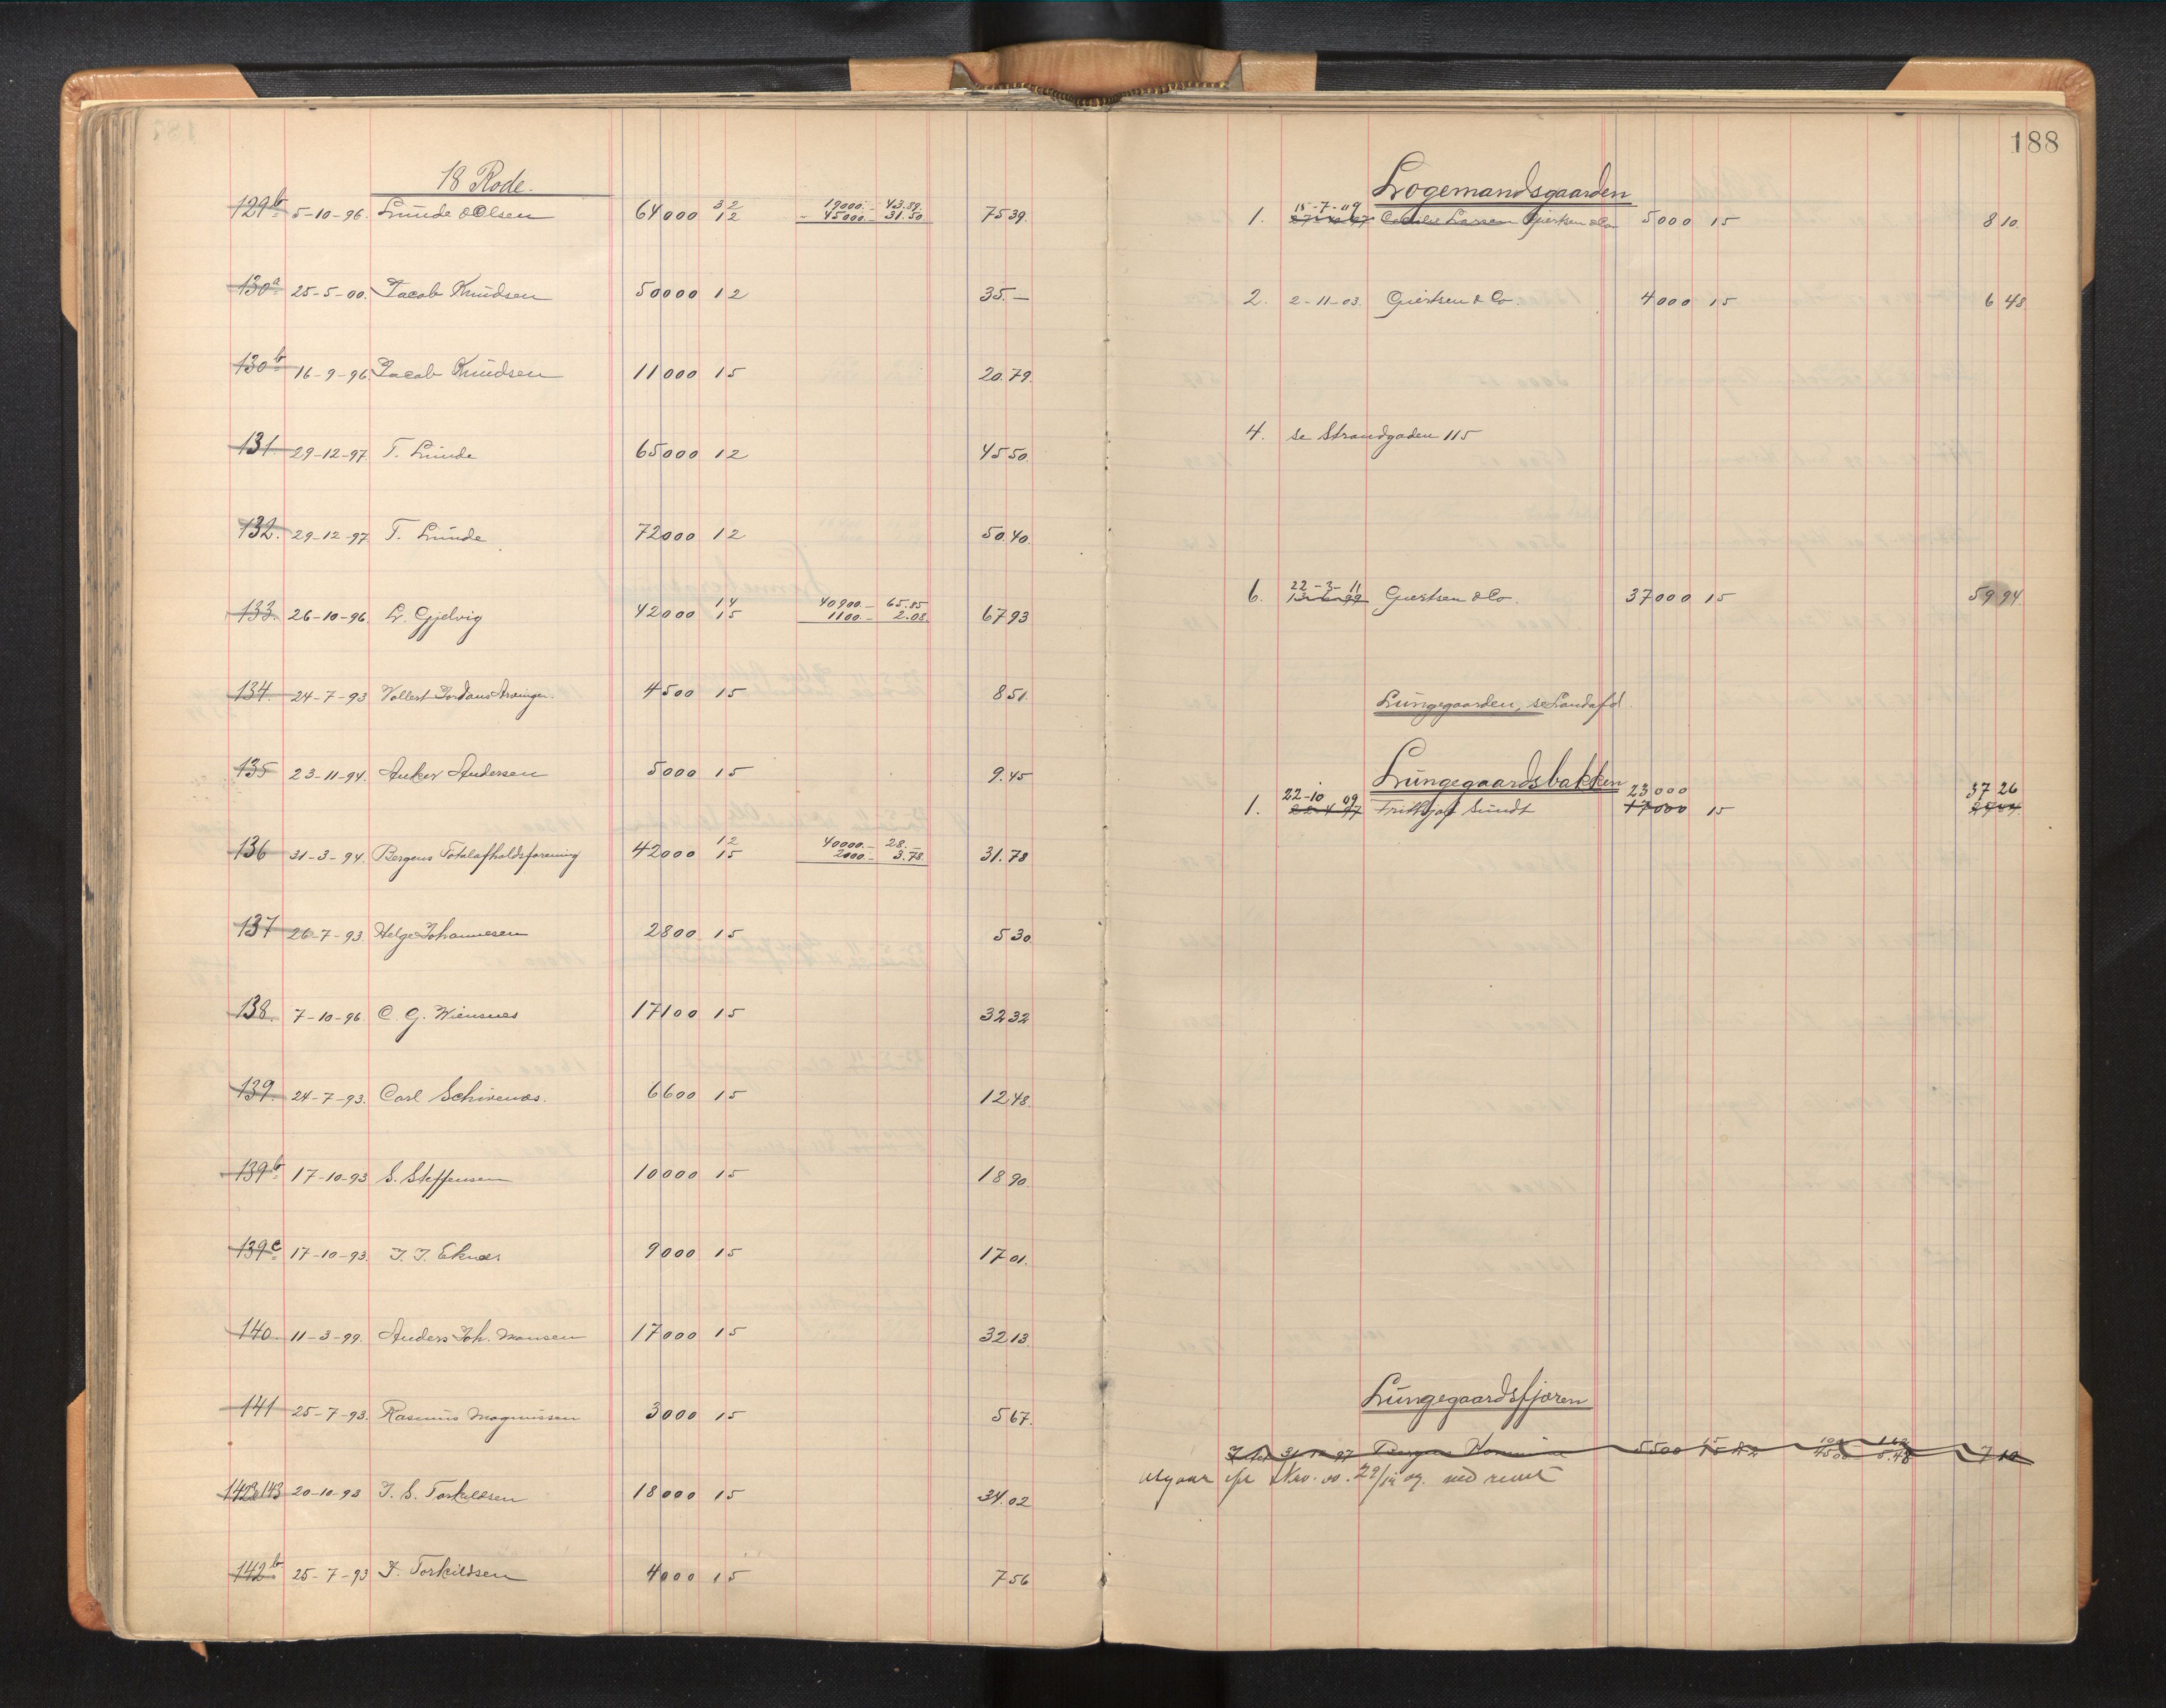 18 Rode.
129b 5-10-96. Lunde & Olsen 64000 32 12 19000.- 43.89. 45000.- 31.50 75 39.
130a 25-5-00. Jacob Knudsen 50000 12 35.-
130b 16-9-96. Jacob Knudsen 11000 15 20.79.
131. 29-12-97. T. Lunde 65000 12 45 50
132. 29-12-97. T. Lunde 72000 12 50.40.
133. 26-10-96. L. Gjelvig 42000 14 15 40900.- 65.85 1100.- 2.08. 67 93
134. 24-7-93 Vollert Jordans Arvinger. 4500 15 8 51.
135 23-11-94. Anker Andersen 5000 15 9.45
136 31-3-94. Bergens Totalafholdsforening 42000 12 15 40000.- 28.- 2000.- 3.78. 31.78
137 26-7-93. Helge Johannesen 2800 15 5 30
138. 7-10-96 C. G. Wiensnes 17100 15 32 32
139. 24-7-93. Carl Schirenæs. 6600 15 12 48.
139b 17-10-93 S. Steffensen 10000 15 18 90.
139c 17-10-93. J. J. Eknæs 9000 15 17 01.
140. 11-3-99. Anders Joh. Monsen 17000 15 32 13.
141 25-7-93. Rasmus Magnussen 3000 15 5 67.
142a 143 20-10-93 J. S. Torkildsen 18000 15 34.02
142b 25-7-93 J. Torkildsen 4000 15 7 56
188
Logemandsgaarden
15-7-09
1. Larsen Giertsen & Co 5000 15 8 10.
2. 2-11-03. Giertsen & Co. 4000 15 6 48.
4. se Strandgaden 115
22-3-11
6. Giertsen & Co. 37000 15 59 94.
Lungegaarden, se Landafd.
Lungegaardsbakken
22-10 09 23000 37 26
1. 22-4-97 Frithjof Sundt 17000 15
Lungegaardsfjæren
31-12-97 Bergens Kommune 5500 15 12 1000 4500 7 10
utgaar